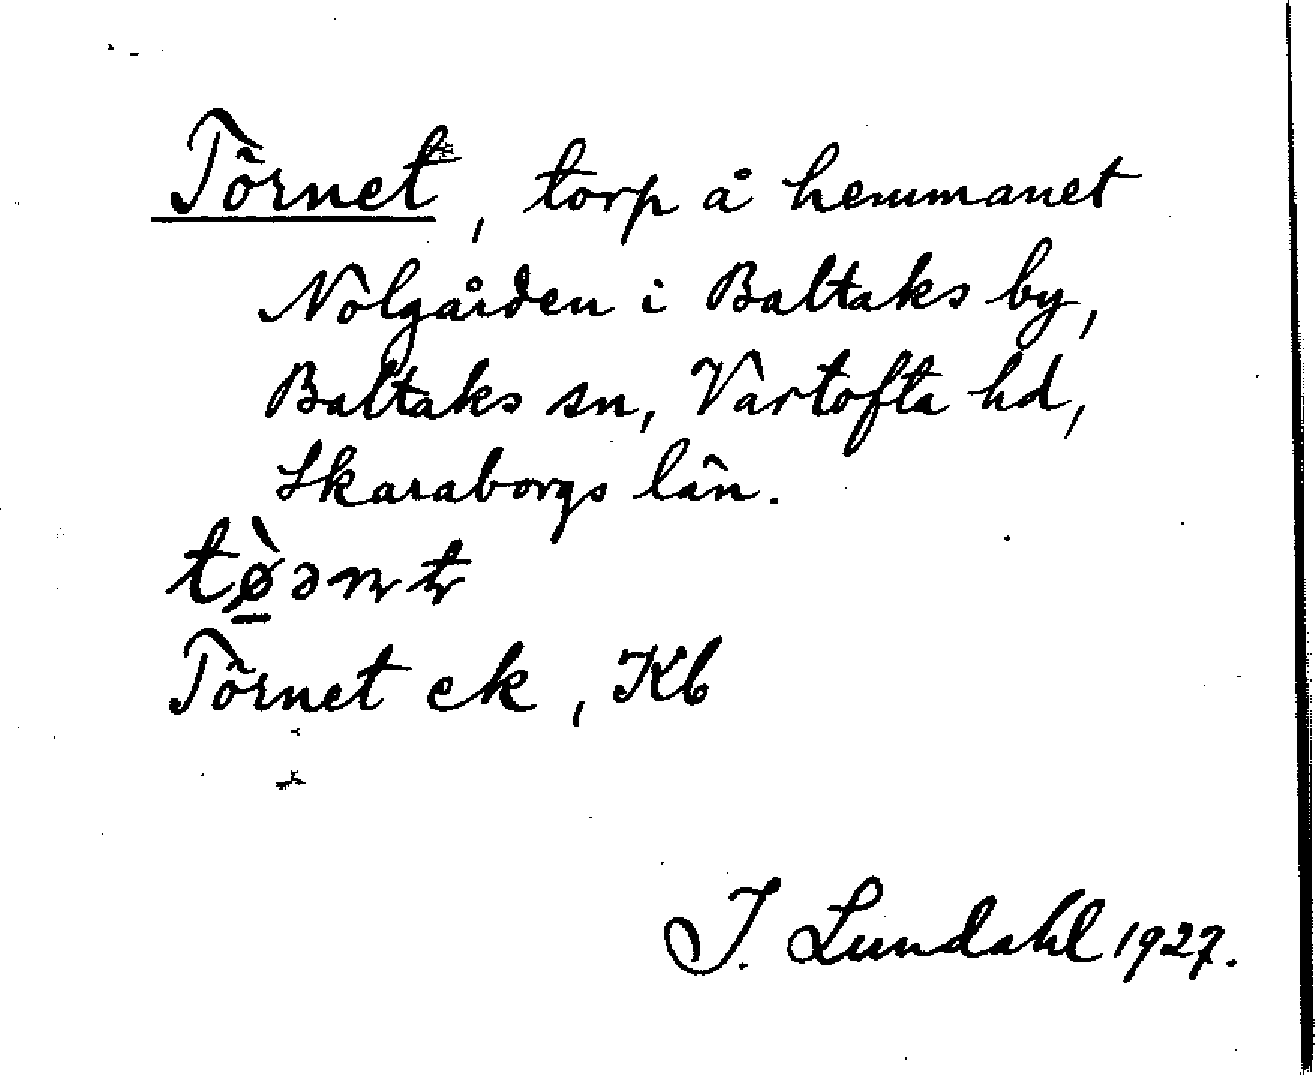 Törnet, torp å hemmanet
Nolgården i Baltaks by,
Baltaks sn, Vartofta hd,
Skaraborgs län.
tø̀ənt
Törnet ek, Kb
I. Lundahl 1927.